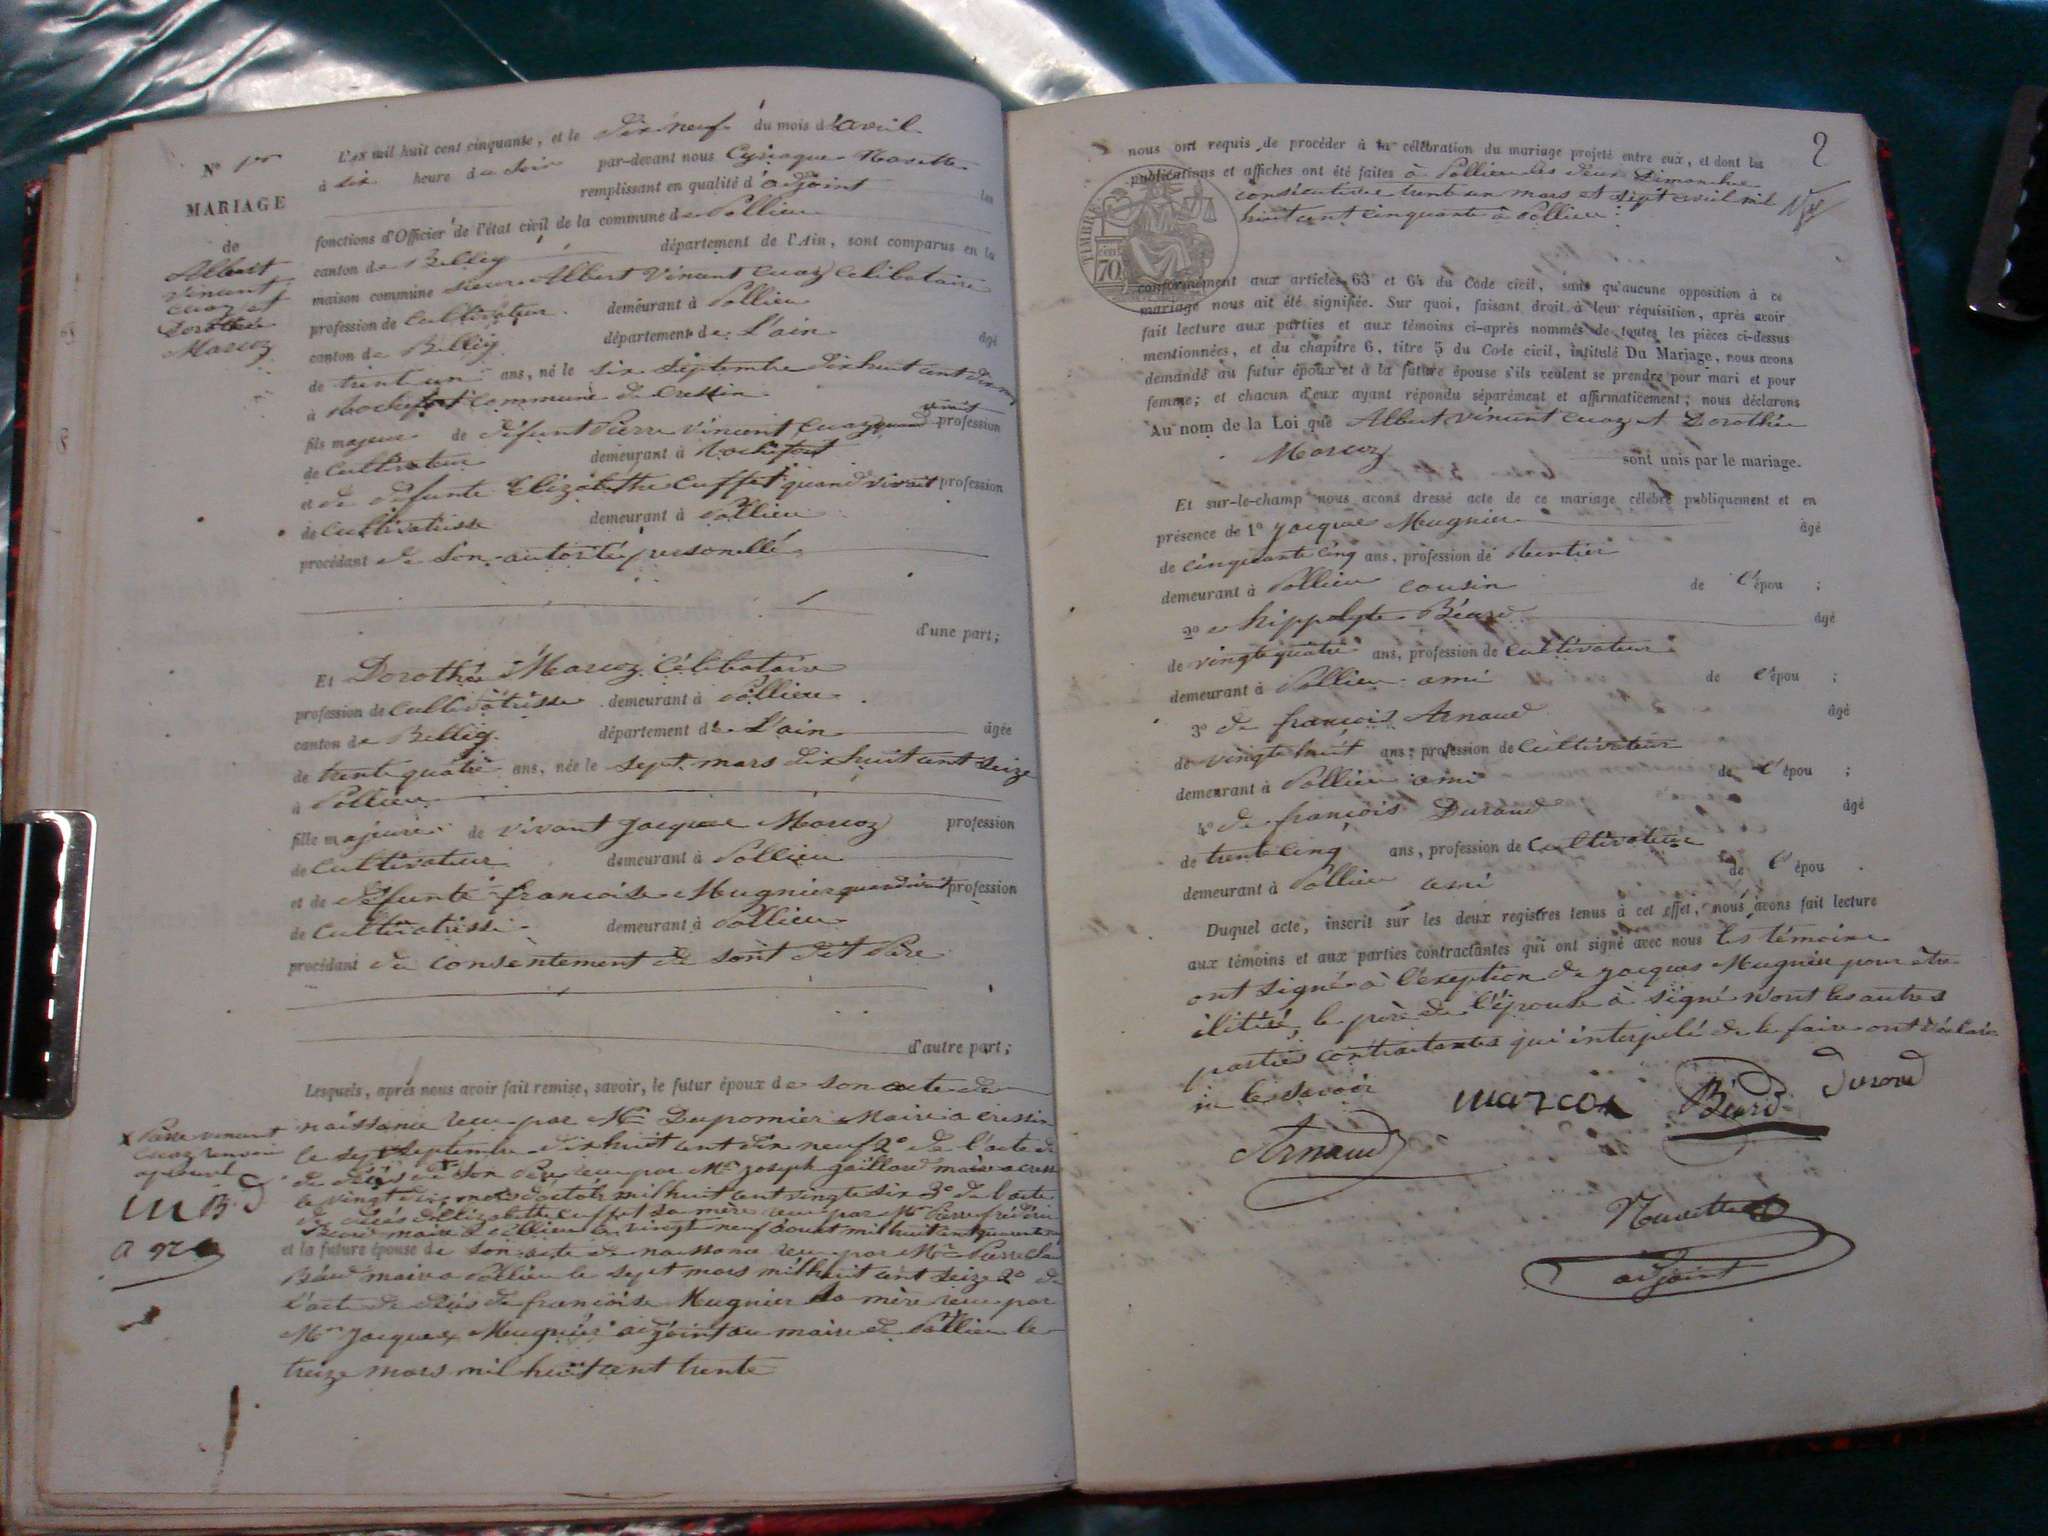 N° 1er
MARIAGE
de
Albert
Vincent
Cuaz et
Dorothée
Marcoz
L'AN mil huit cent cinquante, et le dix neuf du mois d'avril
à six heure du soir par-devant nous Cyriaque
remplissant en qualité d'adjoint les
fonctions d'Officier de l'état civil de la commune de Pollieu
canton de Belley département de l'Ain, sont comparus en la
maison commune sieur Albert Vincent Cuaz Celibataire
profession de Cultivateur demeurant à Pollieu
canton de Belley département de L'ain âgé
de trente un ans, né le six septembre dixhuit cent dixneuf
à Rochefort commune de Cressin
fils majeur de défunt Pierre Vincent Cuaz quand vivait profession
de Cultivateur demeurant à Rochefort
et de défunte Elizabethe Cuffet quand vivait profession
de Cultivatrisse demeurant à Pollieu
procédant de son autorité personelle
d'une part;
Et Dorothée Marcoz Célibataire
profession de Cultivatrisse demeurant à Pollieu
canton de Belley département de L'ain âgée
de trente quatre ans, née le sept mars dixhuit cent seize
à Pollieu
fille majeure de vivant Jacque Marcoz profession
de Cultivateur demeurant à Pollieu
et de défunte françoise Mugnier quand vivait profession
de Cultivatrisse demeurant à Pollieu
procédant du consentement de sont dit Père
d'autre part;
Lesquels, après nous avoir fait remise, savoir, le futur époux de son acte de
naissance reçu par Mr Dupomier Maire a cressin
le sept septembre dixhuit cent dix neuf 2° de l'acte de
de décès de son Père reçu par Mr Joseph gaillard maire a cressin
le vingt dix mois d'octobre milhuit cent vingte six 3° de l'acte
de décès d'Elizabette Cuffet sa mère reçu par Mr Pierre frédéric
Béard maire a Pollieu le vingt neuf aout mil huit cent quarente
et la future épouse de son acte de naissance reçu par Mr Pierre
Béard maire a Pollieu le sept mars milhuit cent seize 2° de
l'acte de décès de françoise Mugnier sa mère reçu par
Mr Jacques Mugnier adjoint au maire de Pollieu le
treize mars mil huit cent trente
x Pierre vincent
Cuaz renvoi
aprouvé
M B D
a
2
nous ont requis de procéder à la célébration du mariage projeté entre eux, et dont les
publications et affiches ont été faites à Pollieu les deux dimanche
consécutive trent un mars et sept avril mil
huit cent cinquante à Pollieu
TIMBRE
70
conformément aux articles 63 et 64 du Code civil, sans qu'aucune opposition à ce
mariage nous ait été signifiée. Sur quoi, faisant droit à leur réquisition, après avoir
fait lecture aux parties et aux témoins ci-après nommés de toutes les pièces ci-dessus
mentionnées, et du chapitre 6, titre 5 du Code civil, intitulé Du Mariage, nous avons
demandé au futur époux et à la future épouse s'ils veulent se prendre pour mari et pour
femme; et chacun d'eux ayant répondu séparément et affirmativement; nous déclarons
Au nom de la Loi que Albert Vincent Cuaz et Dorothée
Marcoz sont unis par le mariage.
Et sur-le-champ nous avons dressé acte de ce mariage célébré publiquement et en
présence de 1° Jacques Mugnier âgé
de cinquante cinq ans, profession de Rentier
demeurant à Pollieu cousin de l'épou ;
2° e hippolyte Béard âgé
de vingte quatre ans, profession de Cultivateur
demeurant à Pollieu ami de l'épou ;
3° de françois Arnaud âgé
de vingte huit ans, profession de Cultivateur
demeurant à Pollieu ami de l'épou ;
4° de françois Duraud âgé
de trente cinq ans, profession de Cultivateur
demeurant à Pollieu ami de l'épou .
Duquel acte, inscrit sur les deux registres tenus à cet effet, nous avons fait lecture
aux témoins et aux parties contractantes qui ont signé avec nous les témoins
ont signé à l'exeption de Jacques Mugnier pour être
ilitéré, le père de l'épouse à signé n'ont les autres
parties contractantes qui interpelé de le faire ont déclaré
ne le savoir
marcoz Béard Duraud
Arnaud
adjoint